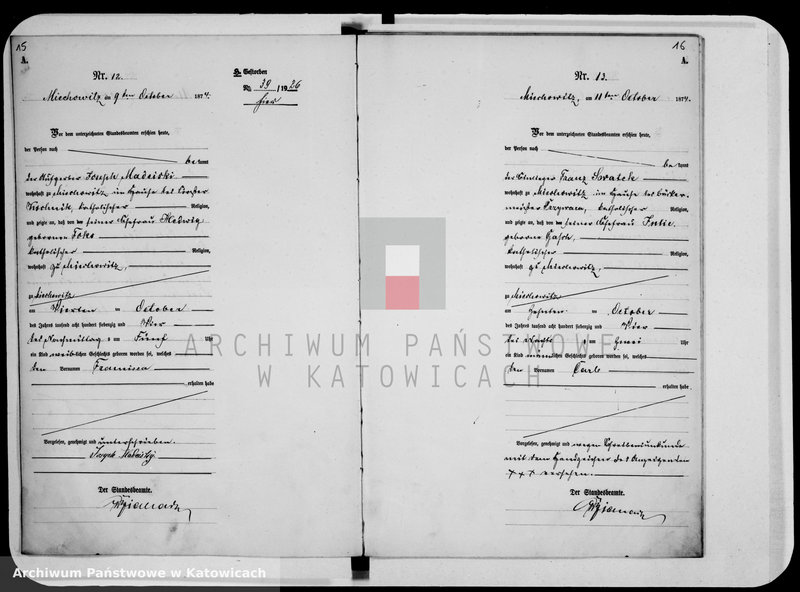 15
A.
Nr. 12.
H. Gestorben
No. 39 / 1926
hier
Miechowitz am 9ten October 1874.
Vor dem unterzeichneten Standesbeamten erschien heute,
der Person nach
bekannt
der Joseph
wohnhaft zu Miechowitz im Hause des Förster
katholischer Religion,
und zeigte an, daß von der seiner Ehefrau Hedwig
geborenen
katholischer Religion,
wohnhaft zu Miechowitz,
zu Miechowitz
am Vierten ten October
des Jahres tausend acht hundert siebenzig und Vier
des Nachmittag s um Fünf Uhr
ein Kind weiblichen Geschlechts geboren worden sei, welches
den Vornamen
erhalten habe
Vorgelesen, genehmigt und unterschrieben.
Der Standesbeamte.
16
A.
Nr. 13.
Miechowitz, am 11ten October 1874.
Vor dem unterzeichneten Standesbeamten erschien heute,
der Person nach
bekannt
der Franz
wohnhaft zu Miechowitz im Hause des
katholischer Religion,
und zeigte an, daß von der seiner Ehefrau
geborene
katholischer Religion,
wohnhaft zu Miechowitz,
zu Miechowitz
am Zehnten ten October
des Jahres tausend acht hundert siebenzig und Vier
des um Uhr
ein Kind männlichen Geschlechts geboren worden sei, welches
den Vornamen Carl
erhalten habe
Vorgelesen, genehmigt und wegen Schreibensunkunde
mit dem Handzeichen des Anzeigenden
+++ versehen.
Der Standesbeamte.
ARCHIWUM PAŃSTWOWE
W KATOWICACH
Archiwum Państwowe w Katowicach